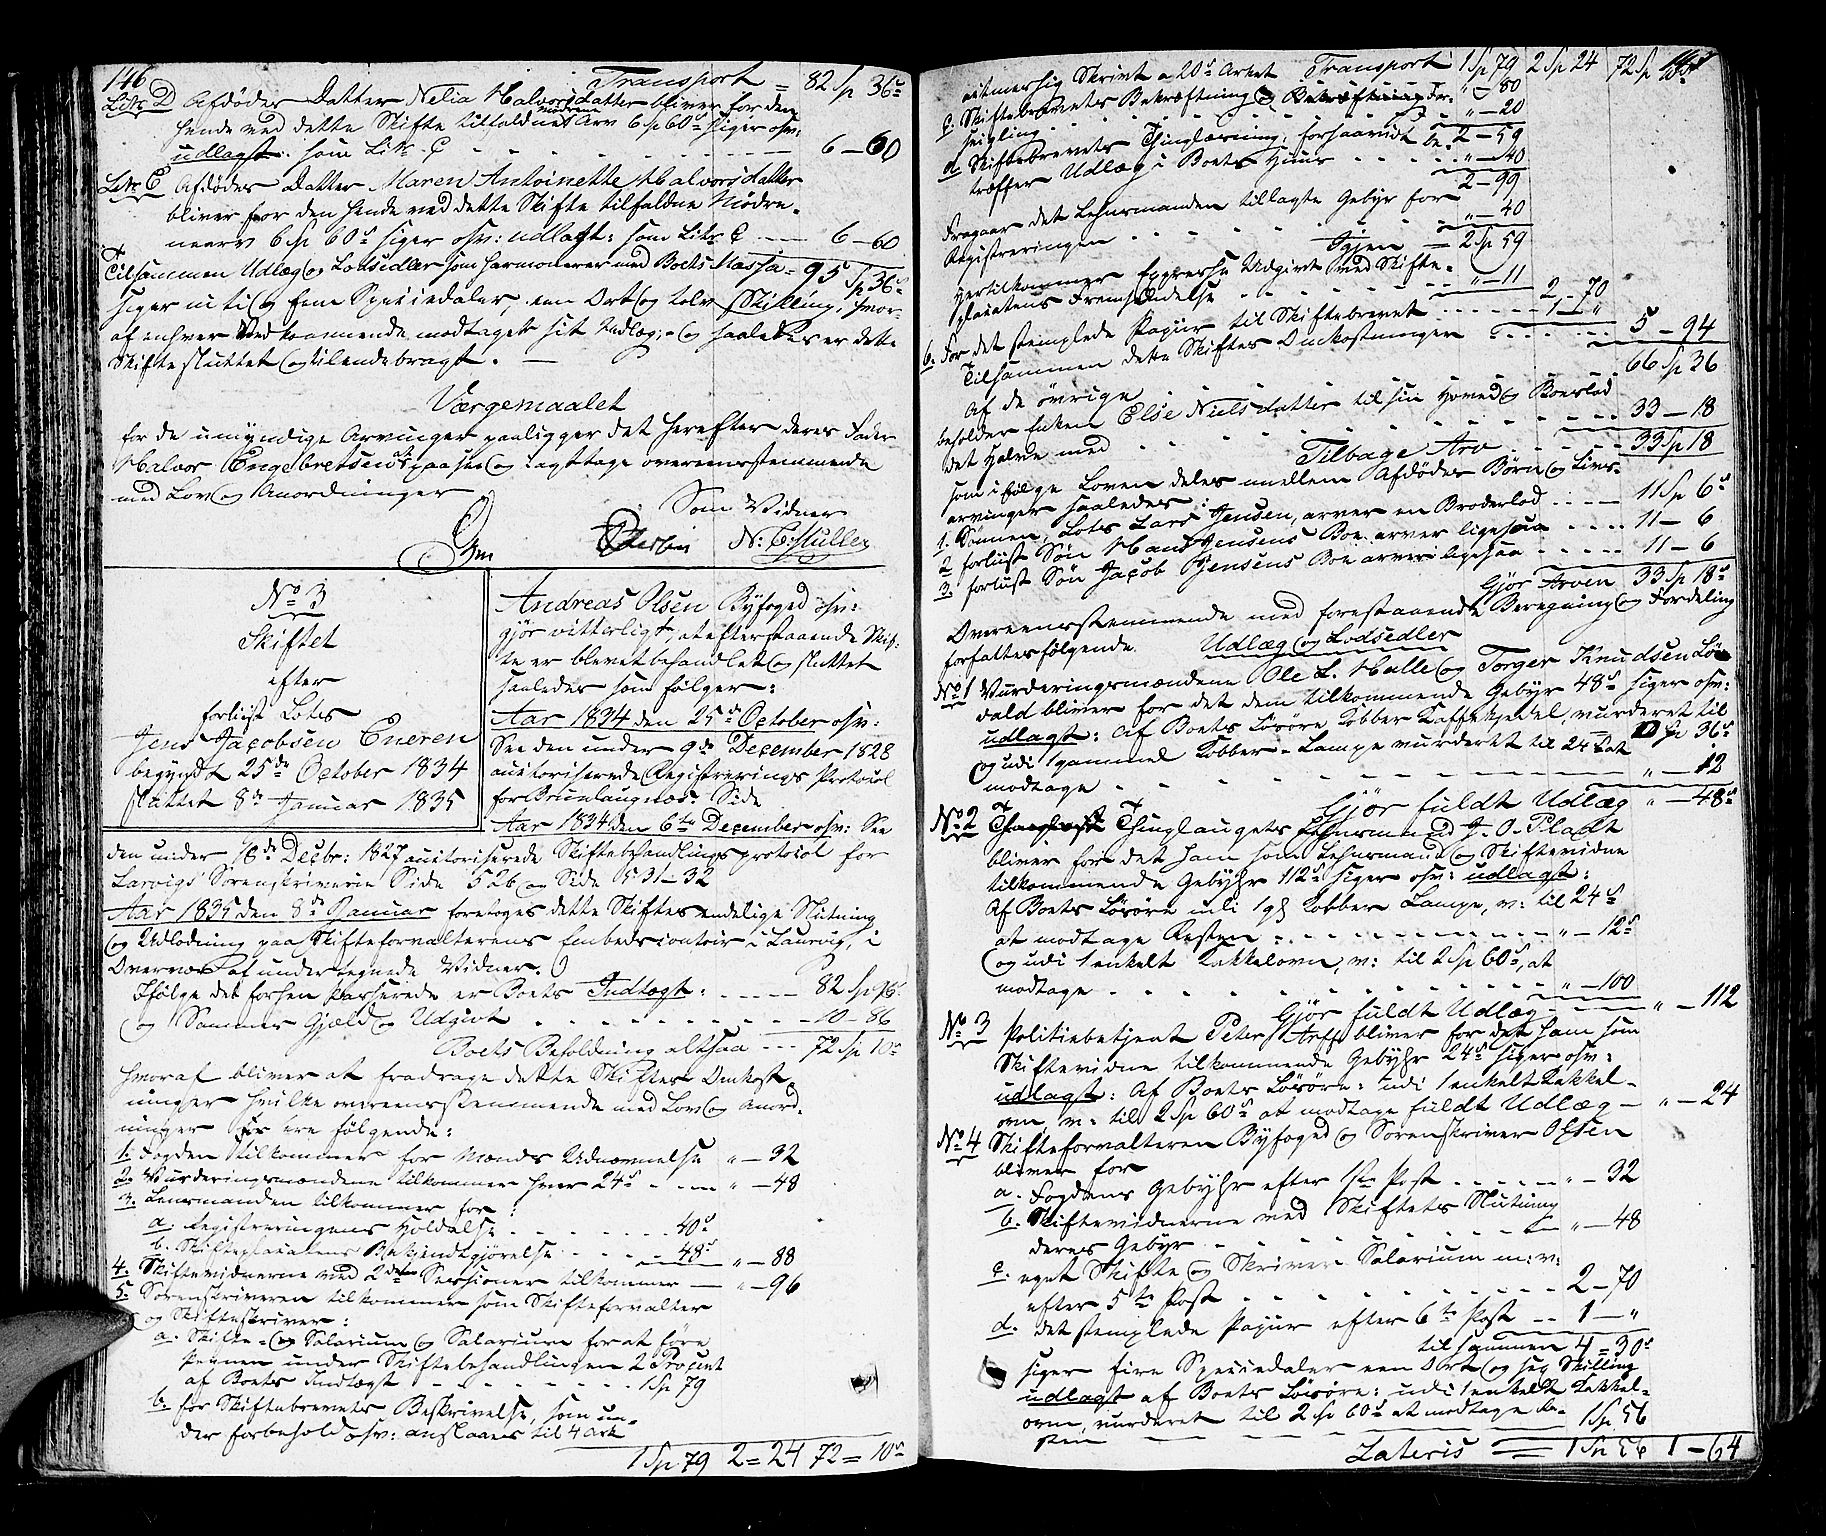 146 Transport = 82 Sp 36 s
Litr D Afdødes Datter Nelia Halvorsdatter bliver for den
hende ved dette Skifte tilfaldne mødrene Arv 6 Sp 60 s siger osv:
udlagt: som Litr C 6 — 60
Litr E Afdødes Datter Maren Antoinette Halvorsdatter
bliver for den hende ved dette Skifte tilfaldne Mødre-
nearv 6 Sp 60 s siger osv: udlagt: som Litr C 6 — 60
Tilsammen Udlæg og Lodsedler som harmonerer med Boets Massa = 95 Sp 36 s
siger niti og fem Speciedaler, een Ort og tolv Skilling, hvor-
af enhver Vedkommende modtager sit Udlæg; — og saaledes er dette
Skifte sluttet og tilendebragt. —
Værgemaalet
for de umyndige Arvinger paaligger det herefter deres Fader
Halvor Engebretsen at paasee og iagttage overeensstemmende
med Lov og Anordninger
Som Vidner
N: C: Müller
No 3
Skiftet
efter
forlist Lods
Jens Jacobsen Eneren
begyndt 25de October 1834
sluttet 8de Januar 1835
Andreas Olsen Byfoged osv:
gjør vitterligt, at efterstaaende Skif-
te er blevet behandlet og sluttet
saaledes som følger:
Aar 1834 den 25de October osv:
See den under 9de December 1828
autoriserede Registrerings Protocol
for Brunlaugnæs. Side
Aar 1834 den 6te December osv: See
den under 18de Decbr: 1827 autoriserede Skiftebehandlingsprotocol for
Larvigs Sorenskriverie Side 526 og Side 531-32
Aar 1835 den 8de Januar foretoges dette Skiftes endelige Slutning
og Udlodning paa Skifteforvalterens Embedscontoir i Laurvig, i
Overvær af undertegnede Vidner.
Ifølge det forhen passerede er Boets Indtægt: 82 Sp 96 s
og Summen Gjæld og Udgivt 10 — 86
Boets Beholdning altsaa 72 Sp 10 s
hvoraf bliver at fradrage dette Skiftes Omkost-
ninger hvilke overeensstemmende med Lov og Anord-
ninger ere følgende:
1. Fogden tilkommer for Mænds Udnævnelse " — 32
2. Vurderingsmændene tilkommer hver 24 s " — 48
3. Lensmanden tilkommer for
a. Registreringens Holdelse 40 s
b. Skifteplacatens Bekjendtgjørelse 48 s " — 88
4. Skiftevidnerne med 2de Sessioner tilkommer " — 96
5. Sorenskriveren tilkommer som Skifteforvalter
og Skifteskriver:
a. Skifte- og Salarium og Salarium for at føre
Pennen under Skiftebehandlingen 2 Procent
af Boets Indtægt 1 Sp 79
b. for Skiftebrevets Beskrivelse, som un-
der forbehold osv: anslaaes til 4 Ark
1 Sp 79 2 = 24 72 = 10 s
Transport 1 Sp 79 2 Sp 24 72 Sp 10 s
retmersig Skrivt a 20 s Arket " — 80
c. Skiftebrevets Bekræftning og For-
seigling " — 20
2 — 59
d. Skiftebrevets Thinglæsning, forsaavidt be-
træffer Udlæg i Boets Huus " — 40
2 — 99
fragaar det Lehnsmanden tillagte Gebyr for
Registreringen " — 40
Igjen = 2 Sp 59
hertilkommer Expresse Udgivt ved Skifte-
placatens Fremsendelse " — 11 2 — 70
6. For det stemplede Papiir til Skiftebrevet 1 — "
Tilsammen dette Skiftes Omkostninger 5 — 94
66 Sp 36
Af de øvrige
beholder Enken Else Nielsdatter til sin Hoved og Boeslod
det Halve med 33 — 18
Tilbage Arv 33 Sp 18
som ifølge Loven deles mellem Afdødes Børn og Livs-
arvinger saaledes:
1. Sønnen, Lods Lars Jensen, arver en Broderlod 11 Sp 6 s
2 forlist Søn Hans Jensens Boe arver ligesaa 11 — 6
3. forlist Søn Jacob Jensens Boe arver ligesaa 11 — 6
Gjør Arven 33 Sp 18 s
Overeensstemmende med forestaaende Beregning og Fordeling
forfattes følgende Udlæg og Lodsedler
No 1 Vurderingsmændene Ole L. Halle og Torger Knudsen Løv-
dald bliver for det dem tilkommende Gebyr 48 s siger osv:
udlagt: Af Boets Løsøre, Kobber Kaffekjedel, vurderet til 36 s
og udi 1 gammel Kobber-Lampe vurderet til 24 s at
modtage " — 12
Gjør fuldt Udlæg " — 48 s
No 2 Thinglaugets Lehnsmand J. O. Pladt
bliver for det ham som Lehnsmand og Skiftevidne
tilkommende Gebyhr 112 s siger osv: udlagt:
Af Boets Løsøre udi 1 gl Kobber Lampe, v: til 24 s
at modtage Resten " — 12 s
og udi 1 enkelt Kakkelovn, v: til 2 Sp 60 s, at
modtage " — 100
Gjør fuldt Udlæg " — 112
No 3 Politiebetjent Peter Arff bliver for det ham som
Skiftevidne tilkommende Gebyhr 24 s siger osv:
udlagt: Af Boets Løsøre: udi 1 enkelt Kakkel-
ovn, v: til 2 Sp 60 s at modtage fuldt Udlæg — " — 24
No 4 Skifteforvalteren Byfoged og Sorenskriver Olsen
bliver for
a. Fogdens Gebyhr efter 1ste Post " — 32
b. Skiftevidnerne ved Skiftets Slutning
deres Gebyr " — 48
c. eget Skifte og Skriver Salarium m: v:
efter 5te Post 2 — 70
d. det stemplede Papiir efter 6te Post 1 — "
tilsammen 4 = 30 s
siger fire Speciedaler een Ort og sex Skilling
udlagt af Boets Løsøre: udi 1 enkelt Kakkel-
ovn, vurderet til 2 Sp 60 s at modtage Re-
sten 1 Sp 56
Lateris = 1 Sp 56 1 — 64